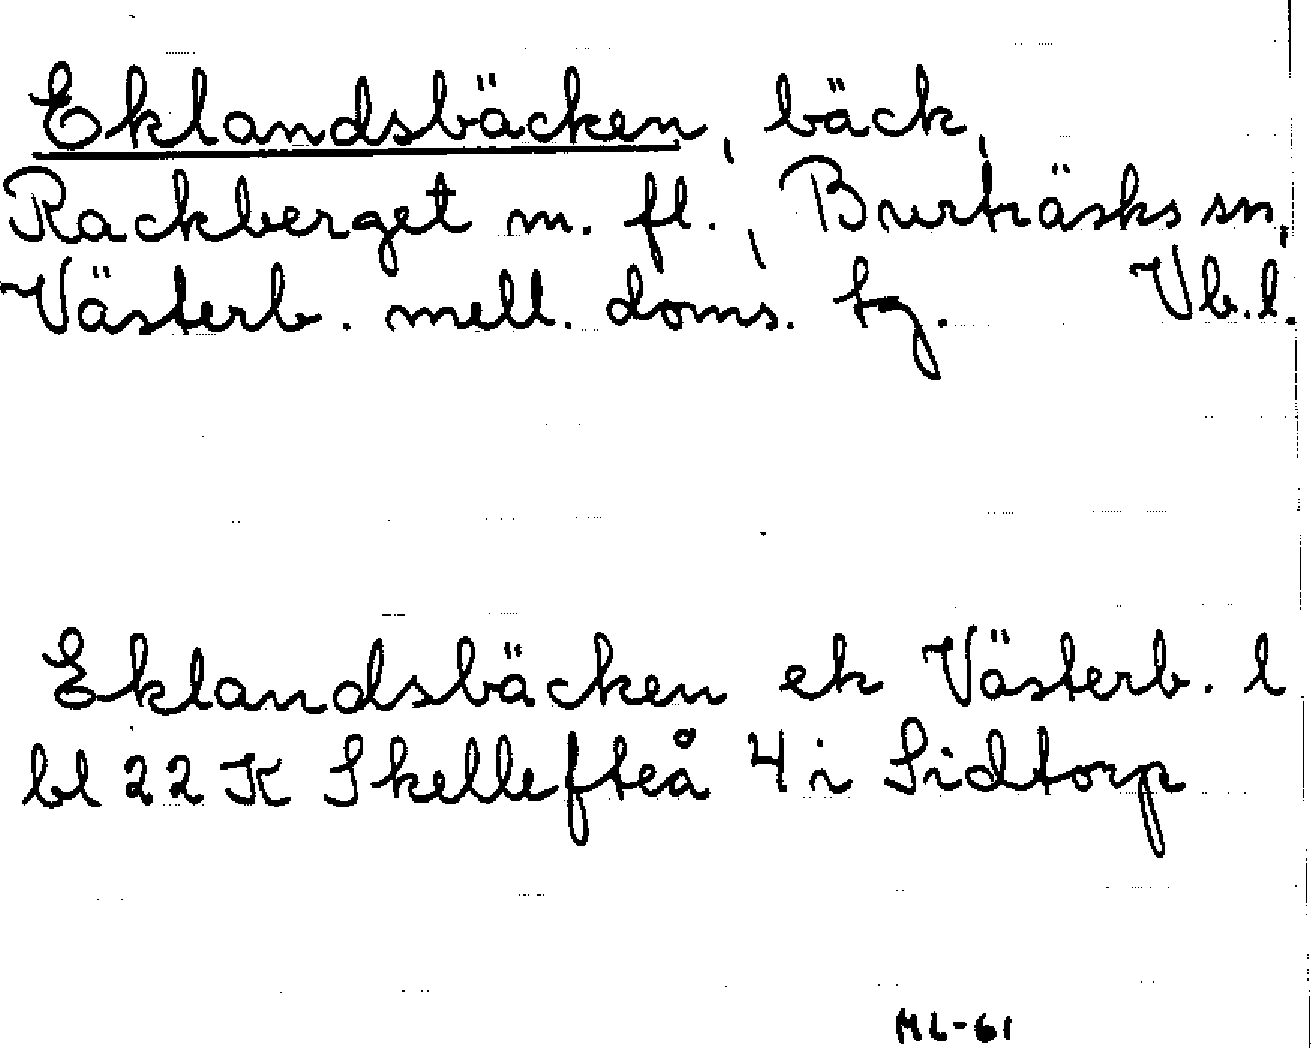 Eklandsbäcken, bäck,
Rackberget m. fl., Burträsks sn,
Västerb. mell. doms. tg. Vb. l.
Eklandsbäcken ek Västerb. l
bl 22 K Skellefteå 4 i Sidtorp
ML-61